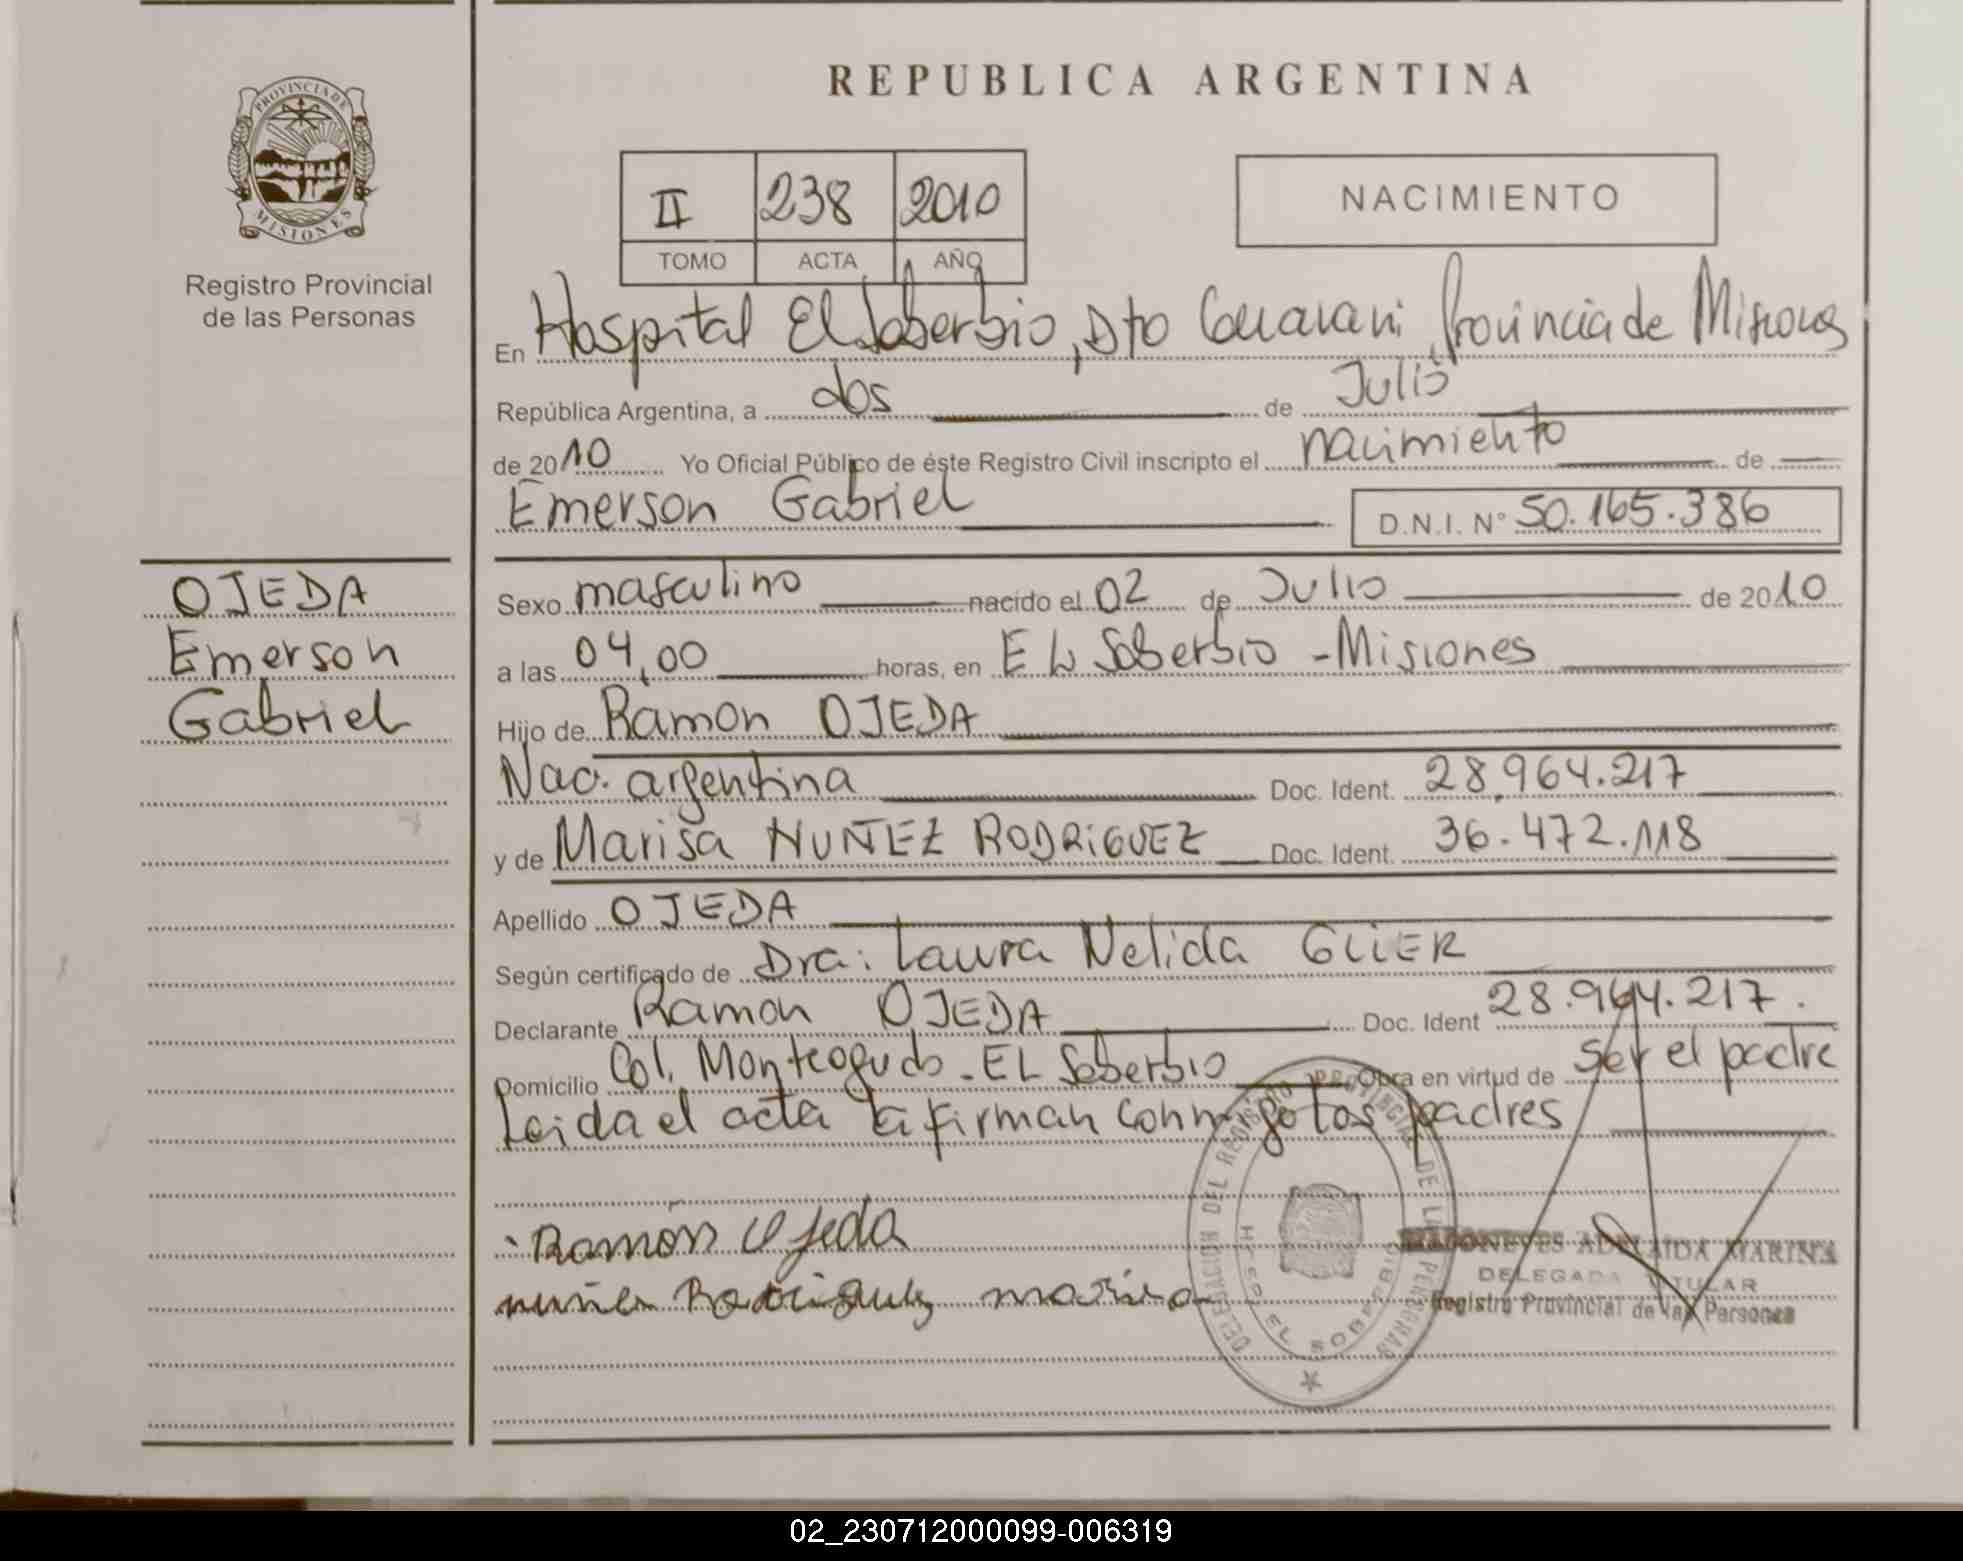 PROVINCIA DE
MISIONES
Registro Provincial
de las Personas
REPUBLICA ARGENTINA
II 238 2010
TOMO ACTA AÑO
NACIMIENTO
En Hospital El Soberbio, Dto Guarani, Provincia de Misiones
República Argentina, a dos de Julio
de 2010 Yo Oficial Público de éste Registro Civil inscripto el nacimiento de
Emerson Gabriel D.N.I. N° 50.165.386
OJEDA
Emerson
Gabriel
Sexo masculino nacido el 02 de Julio de 2010
a las 04,00 horas, en EL Soberbio - Misiones
Hijo de Ramon OJEDA
Nac. argentina Doc. Ident. 28.964.217
y de Marisa NUÑEZ RODRIGUEZ Doc. Ident. 36.472.118
Apellido OJEDA
Según certificado de Dra: Laura Nelida GLIER
Declarante Ramon OJEDA Doc. Ident 28.964.217.
Domicilio Col. Monteagudo - EL Soberbio Obra en virtud de ser el padre
Leida el acta la firman conmigo los padres
Ramón Ojeda
nuñez Rodriguez marisa
DELEGACION DEL REGISTRO PROVINCIAL DE LAS PERSONAS
EL SOBERBIO
ADELAIDA MARINA
DELEGADA TITULAR
Registro Provincial de las Personas
02_230712000099-006319